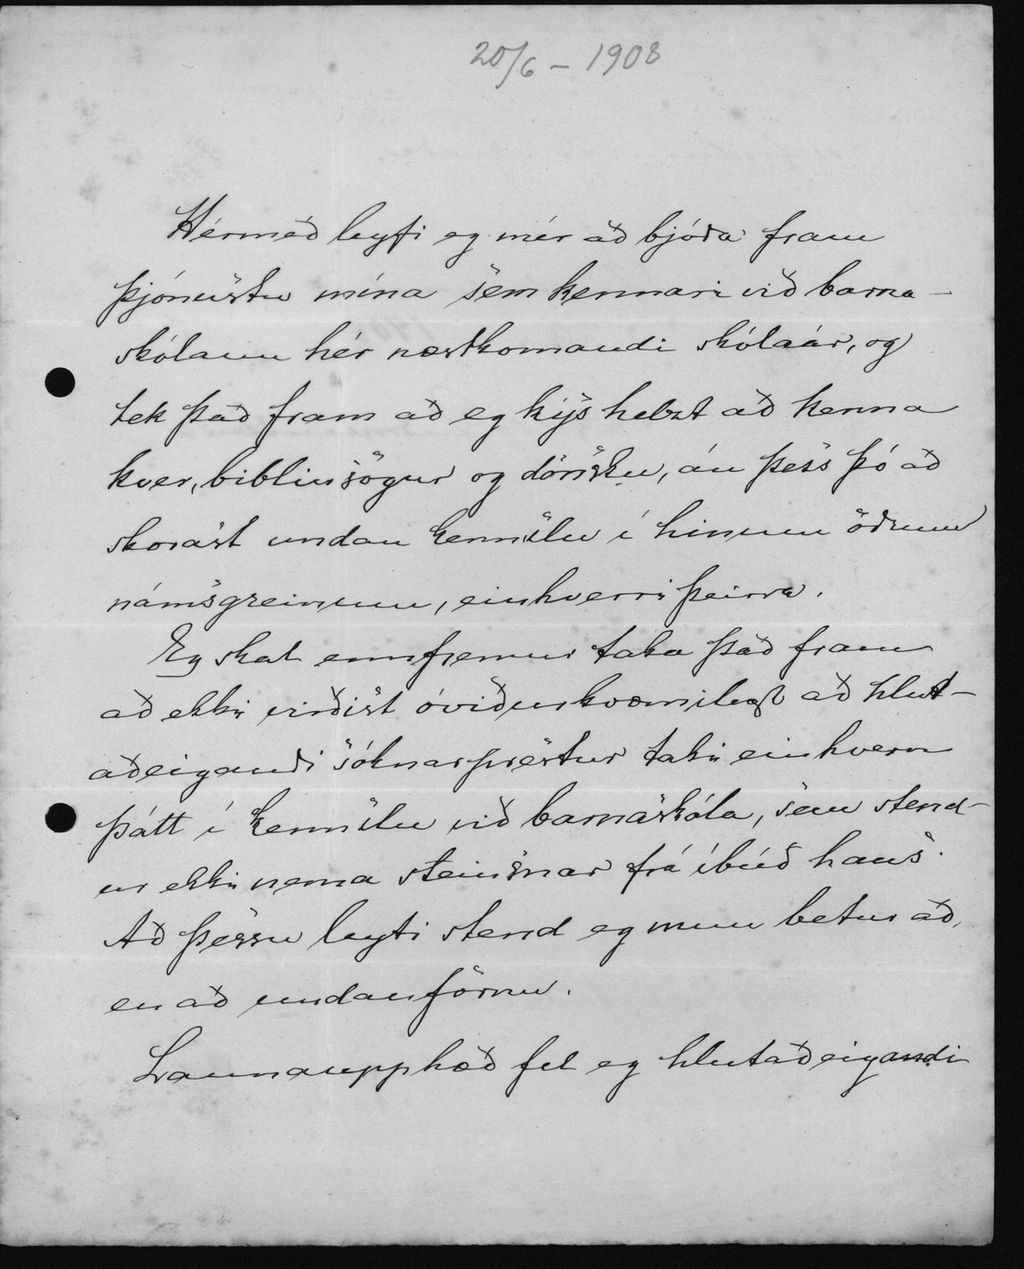 20/6 - 1908
Hérmeð leyfi eg mér að bjóða fram
þjónustu mína sem kennari við barna-
skólann hér næstkomandi skólaár, og
tek það fram að eg kýs helzt að kenna
kver, biblíusögur og dönsku, án þess þó að
skorast undan kennslu í hinum öðrum
námsgreinum, einhverri þeirra.
Eg skal ennfremur taka það fram
að ekki virðist óviðurkvæmilegt að hlut-
aðeigandi sóknarprestur taki einhvern
þátt í kennslu við barnaskóla, sem stend-
ur ekki nema steinsnar frá íbúð hans.
Að þessu leyti stend eg mun betur að,
en að undanförnu.
Launaupphæð fel eg hlutaðeigandi